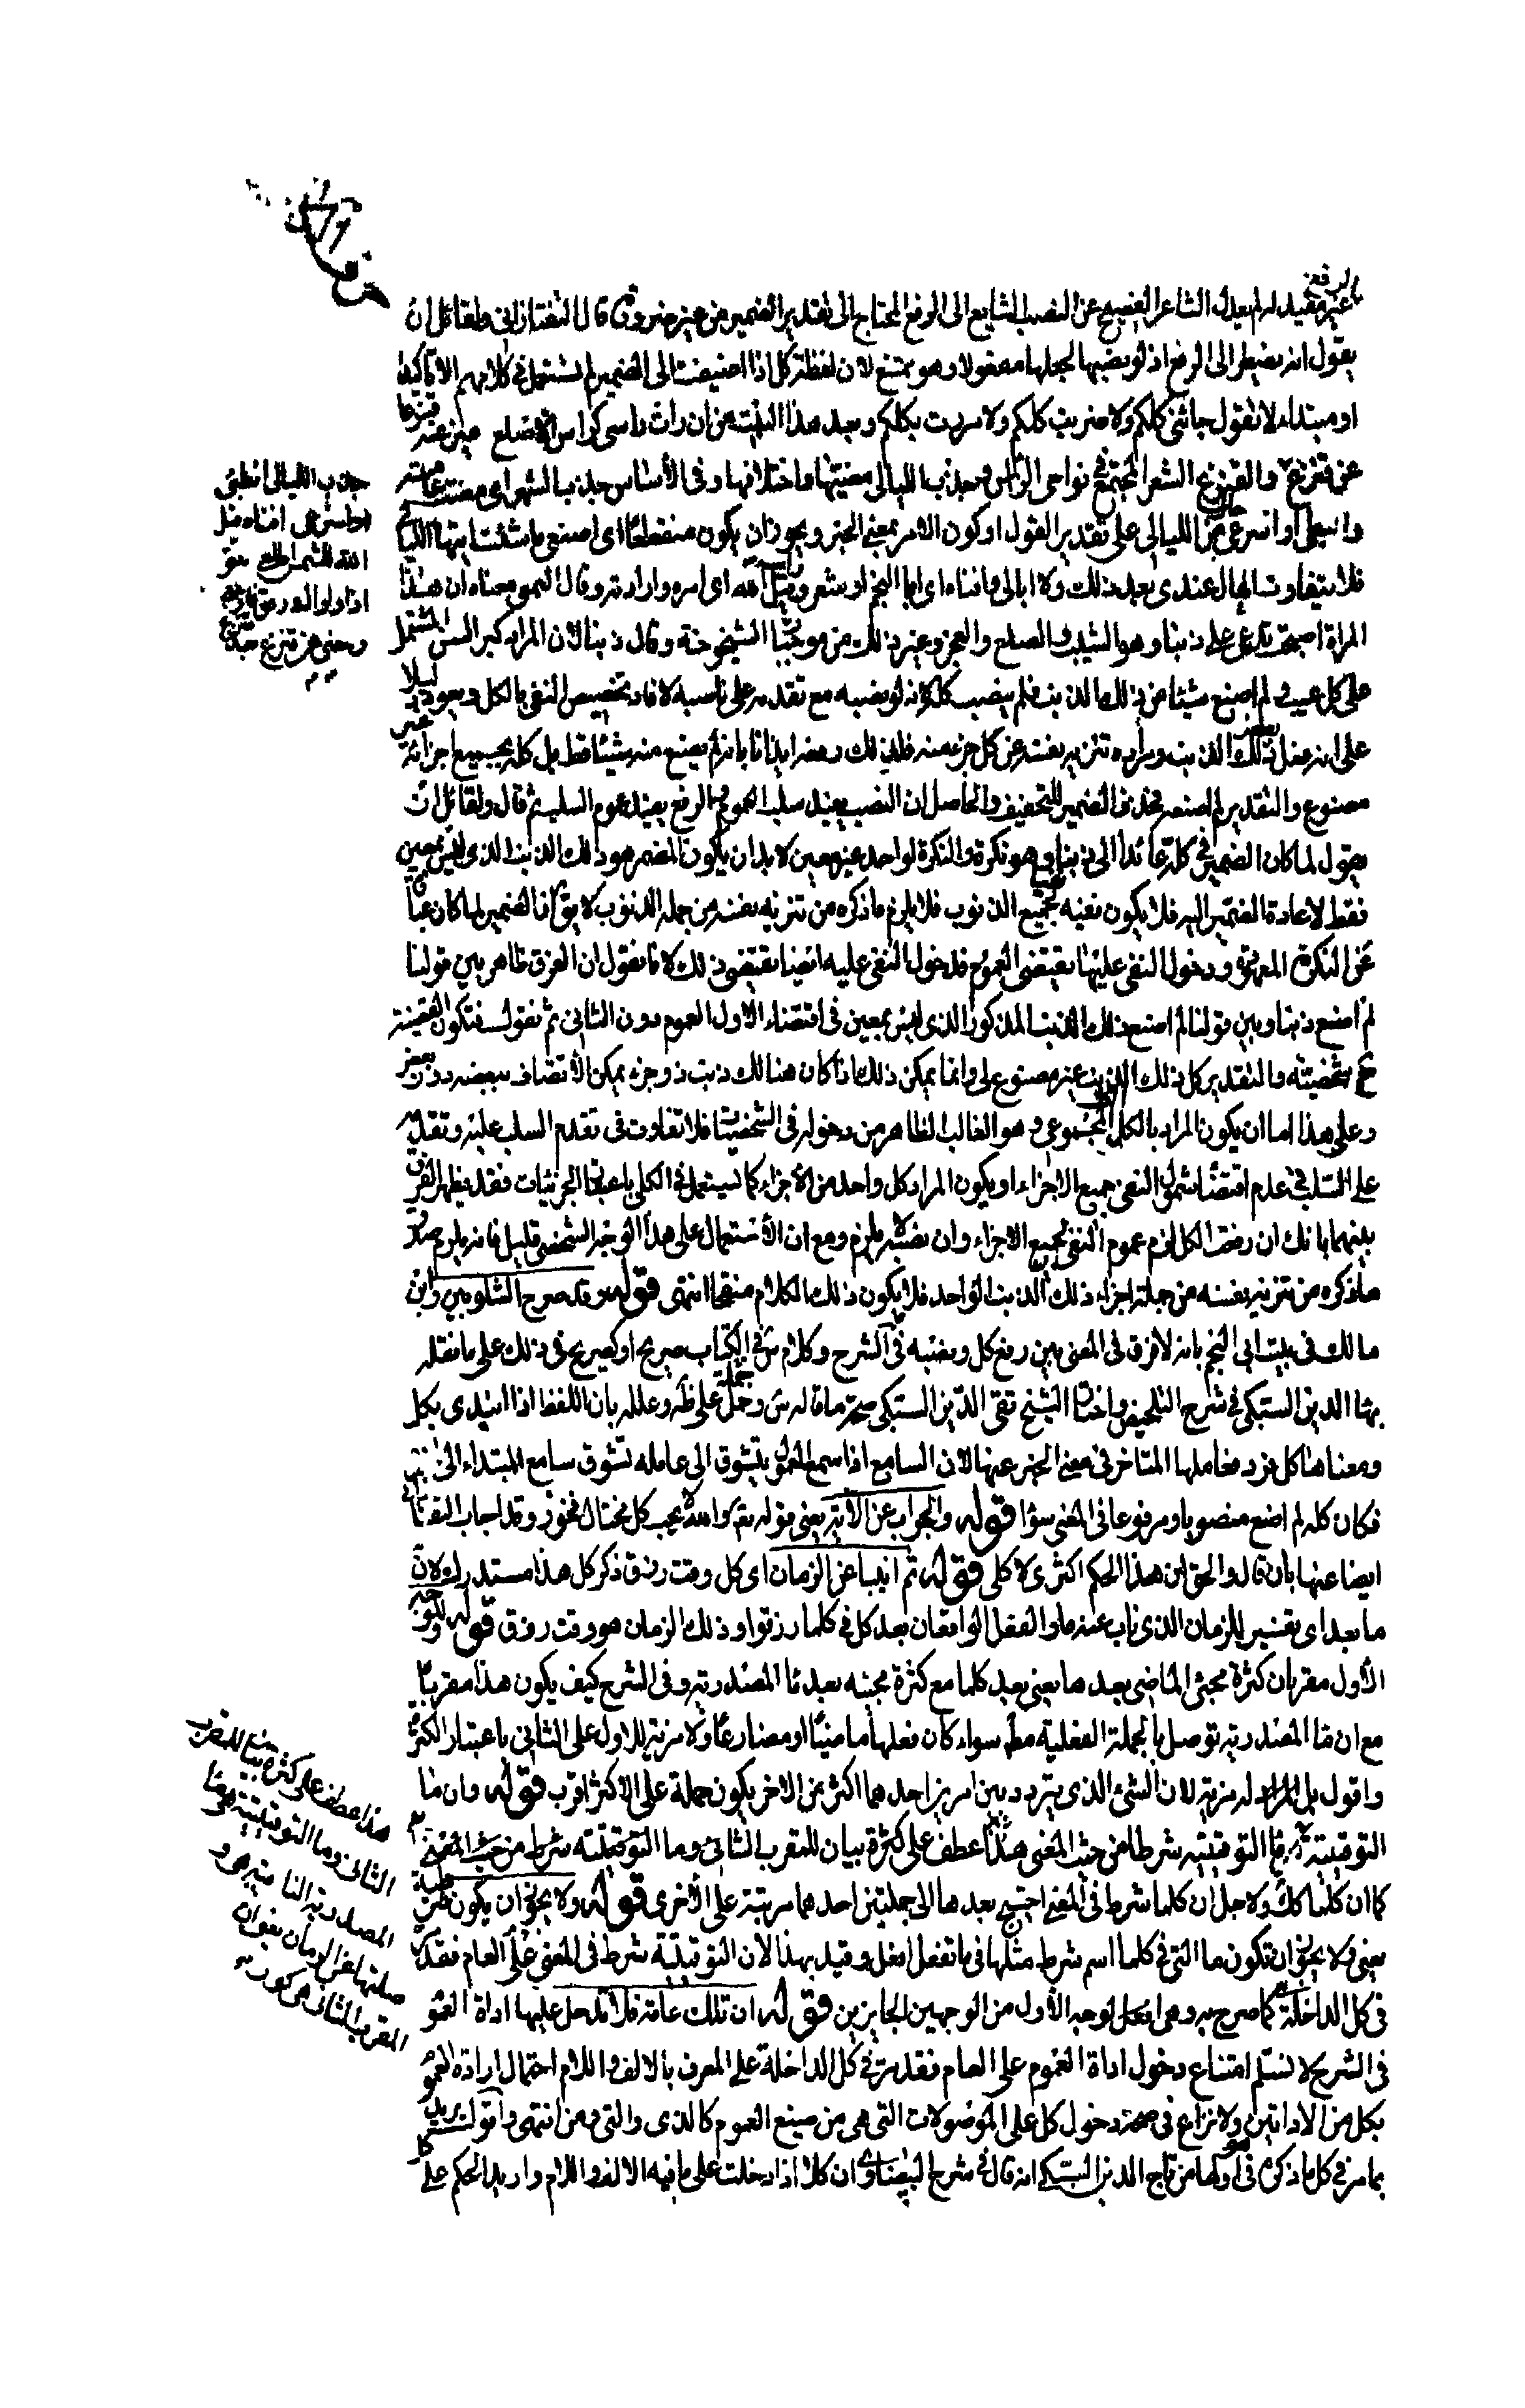 غير مفيد له لم يعدل الشاعر الفصيح عن النصب الشايع الى الرفع المحتاج الى تقدير الضمير من غير ضرورة قال التفتازانى ولقائل ان
يقول انه يضطر الى الرفع اذ لو نصبها لجعلها مفعولا وهو ممتنع لان لفظة كل اذا اضيفت الى الضمير لم تستعمل فى كلامهم الا تاكيدا
او مبتداء لا تقول جائنى كلكم ولا ضربت كلكم ولا مررت بكلكم وبعد هذا البيت من ان رات راسى كراس الاصلع ميز عنه قنزعا
عن قنزع والقنزع الشعر المجتمع فى نواحى الراس وجذب الليالى مضيتها واختلافها وفى الأساس جذب الشهر اى مضت عامته
وابطئى او اسرعى حال من الليالى على تقدير القول او كون الامر بمعنى الخبر ويجوز ان يكون منقطعا اى اصنعى ما شئت ايتها الليالى
فلا يتفاوت الحال عندى بعد ذلك ولا ابالى وافناه اى ابا النجم او شعر وقيل الله اى امره وارادته وقال معناه ان هذه
المراة اصبحت تدعى على ذنبا وهو الشيب والصلع والعجز وغير ذلك من موجبات الشيخوخة وقال ذنبا لان المراد كبر السن المشتمل
على كل عيب ولم اصنع شيئا من ذلك الذنب فلم ينصب كله لانه لو نصبه مع تقدمه على ناصبه لافاد تخصيص النفى بالكل ويعود دليلا
على انه فعل بعض ذلك الذنب ومراده تنزيه نفسه عن كل جزء منه فلذلك رفع ايذانا بانه لم يصنع منه شيئا قط بل كله بجميع اجزائه غير
مصنوع والتقدير لم اصنعه فحذف الضمير للتخفيف والحاصل ان النصب يفيد سلب العموم والرفع يفيد عموم السلب ثم قال ولقائل ان
يقول لما كان الضمير فى كله عائدا الى ذنبا وهو نكرة والنكرة لواحد غير معين لا بد ان يكون المضمر هو ذلك الذنب الذى ليس بمعين
فقط لاعادة الضمير اليه فلا يكون نفيه نفيا لجميع الذنوب فلا يلزم ما ذكره من تنزيه نفسه من جملة الذنوب لا يقال ان الضمير لما كان عبارة
عن النكرة المعهودة ودخول النفى عليها يقتضى العموم فدخول النفى عليه ايضا يقتضى ذلك لانا نقول ان الفرق ظاهر بين قولنا
لم اصنع ذنبا وبين قولنا لم اصنع ذلك الذنب المذكور الذى ليس بمعين فى اقتضاء الاول العموم دون الثانى ثم نقول فتكون القضية
ح شخصية والتقدير كل ذلك الذنب غير مصنوع لى وانما يمكن ذلك اذا كان هنالك ذنب ذو جزء يمكن الاتصاف ببعضه دون بعض
وعلى هذا اما ان يكون المراد بالكل المجموعى وهو الغالب الظاهر من دخوله فى الشخصيات فلا تفاوت فى تقدم السلب عليه وتقدمه
على السلب فى عدم اقتضاء شمول النفى جميع الاجزاء او يكون المراد كل واحد من الأجزاء كما يستعمل فى الكلى باعتبار الجزئيات فقد يظهر الفرق
بينهما بانك ان رفعت الكل لزم عموم النفى لجميع الاجزاء وان نصبته لا يلزم ومع ان الأستعمال على هذا الوجه الشخصى قليل فانه يلزم
ماذكره من تنزيه نفسه من جملة اجزاء ذلك الذنب الواحد فلا يكون ذلك الكلام منقحا انتهى قوله وقد صرح الشلوبين وابن
مالك فى بيت ابى النجم بانه لا فرق فى المعنى بين رفع كل ونصبه فى الشرح وكلام س فى الكتاب صريح او كصريح فى ذلك على ما نقله
بهاء الدين السبكى فى شرح التلخيص واختار الشيخ تقى الدين السبكى صحة ما قاله س وحمله على ظه وعلله بان اللفظ اذا ابتدى بكل
ومعناها كل فرد فعاملها المتاخر فى معنى الخبر عنها لان السامع اذا سمع المفعول يتشوق الى عامله تشوق سامع المبتداء الى
فكان كله لم اصنع منصوبا ومرفوعا فى المعنى سواء قوله والجواب عن الآية يعنى قوله تعم والله لا يحب كل مختال فخور وقد اجاب التفتازانى
ايضا عنها بان قال والحق ان هذا الحكم اكثرى لا كلى قوله ثم انيبا عن الزمان اى كل وقت رزق ذكر كل هذا مستدرك ولان
ما بعد اى تفسير للزمان الذى ناب عنه ما والفعل الواقعان بعد كل فى كلما رزقوا وذلك الزمان هو وقت رزق قوله وللوجه
الأول مقربان كثرة مجئ الماضى بعدها يعنى بعد كلما مع كثرة مجيئه بعد ما المصدرية وفى الشرح كيف يكون هذا مقربا
مع ان ما المصدرية توصل بالجملة الفعلية مط سواء كان فعلها ماضيا او مضارعا ولا مزية للاول على الثانى باعتبار الكثرة
واقول بل المراد له مزية لان الشئ الذى يتردد بين امرين احدهما اكثر من الاخر يكون حمله على الاكثر اقرب قوله وان ما
التوقيتية شرط من حيث المعنى هذا عطف على كثرة بيان للمقرب الثانى وما التوقيتية شرط من حيث المعنى
كما ان كلما كك ولاجل ان كلما شرط فى المعنى احتيج بعدها الى جملتين احدهما مرتبة على الأخرى قوله ولا يجوز ان يكون شرطية
يعنى لا يجوز ان تكون ما التى فى كلما اسم شرط مثلها فى ما تفعل افعل وقيد بهذا لان التوقيتية شرط فى المعنى
فى كل الداخلة كما صرح به وهى الوجه الأول من الوجهين الجايزين قوله ان تلك عامة فلا تدخل عليها اداة العموم
فى الشرح لا نسلم امتناع دخول اداة العموم على العام فقد مر فى كل الداخلة على المعرف بالالف واللام احتمال ارادة العموم
بكل من الاداتين ولا نزاع فى صحة دخول كل على الموصولات التى هى من صيغ العموم كالذى والتى ومن انتهى واقول يريد
بما مر فى كل ما ذكره فى اولها من تاج الدين السبكى انه قال فى شرح البيضاوى ان كلا اذا دخلت على ما فيه الالف واللام واريد الحكم على كل
جذب الليالى ابطئى
او اسرعى افناه قيل
الله للشمس اطلعى
اذا
هذا عطف على كثرة بيان للمقرب
الثانى وما التوقيتية
المصدرية النا
صلتها عن الزمان
المقرب الثانى